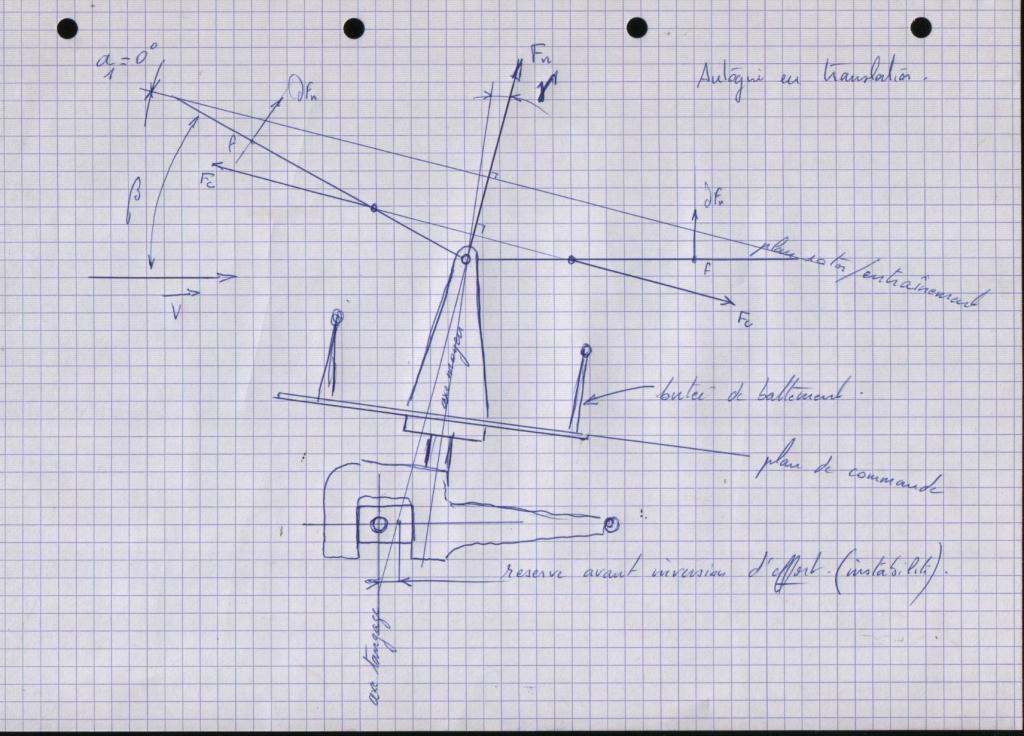 α₁ = 0°
∂Fn
Fn
γ
Autogire en translation.
f
Fc
β
∂Fn
f
plan rotor/entraînement
V
Fc
axe moyen
butée de battement.
plan de commande
réserve avant inversion d'effort. (instabilité).
axe tangage